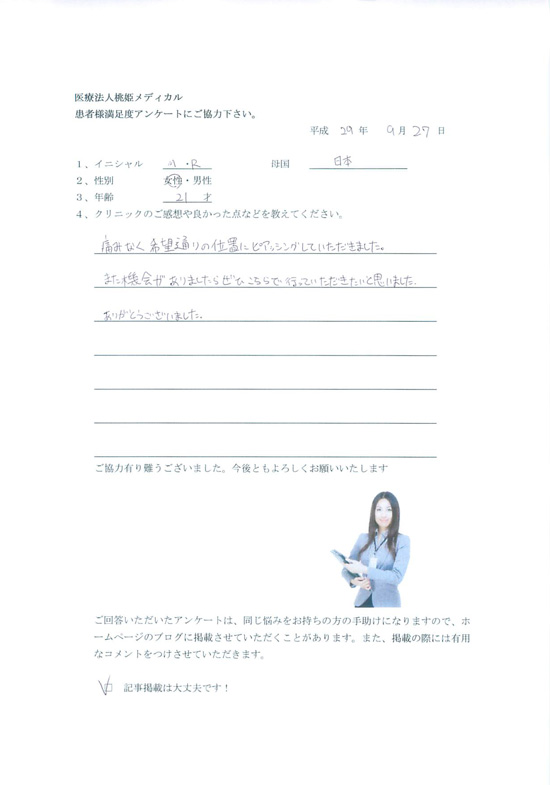 医療法人桃姫メディカル
患者様満足度アンケートにご協力下さい。
平成 29 年 9 月 27 日
1、イニシャル M・R 母国 日本
2、性別 女性・男性
3、年齢 21 才
4、クリニックのご感想や良かった点などを教えてください。
痛みなく希望通りの位置にピアッシングしていただきました。
また機会がありましたらぜひこちらで行っていただきたいと思いました.
ありがとうございました。
ご協力有り難うございました。今後ともよろしくお願いいたします
ご回答いただいたアンケートは、同じ悩みをお持ちの方の手助けになりますので、ホ
ームページのブログに掲載させていただくことがあります。また、掲載の際には有用
なコメントをつけさせていただきます。
記事掲載は大丈夫です！